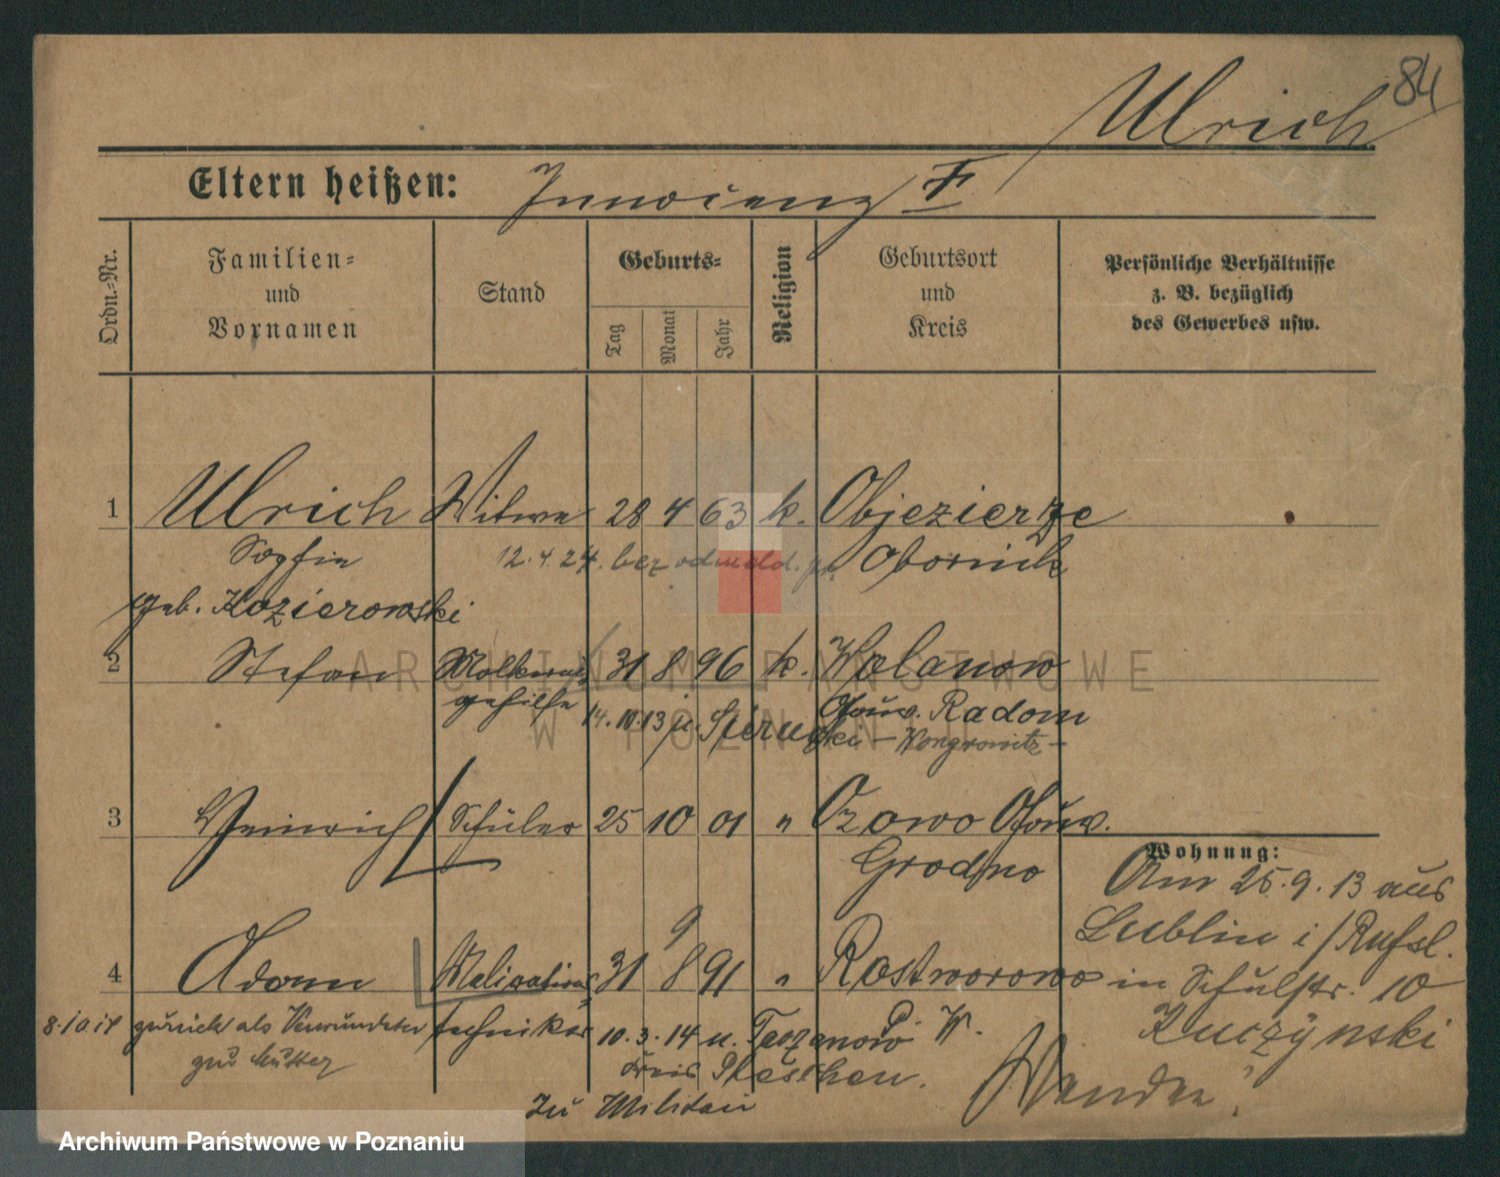 84
Ulrich
Eltern heißen: Innocenz †
Ordn.-Nr.
Familien-
und
Vornamen
Stand
Geburts-
Tag
Monat
Jahr
Religion
Geburtsort
und
Kreis
Persönliche Verhältnisse
z. B. bezüglich
des Gewerbes usw.
1 Ulrich Witwe 28 4 63 k. Objezierze
Sophie 12.4.24. bez odmeld. Obornik
geb. Kozierowski
2 Stefan Molkerei 31 8 96 k. Wolanow
gehilfe Gouv. Radom
14.10.13 n. Sierniki - Wongrowitz -
3 Heinrich Schüler 25 10 01 " Ozowo Gouv.
Grodno
Wohnung:
Am 25.9.13 aus
Lublin i/Rußl.
9
4 Adam Meliorations 31 8 91 " Rostworowo in Schulstr. 10
8.10.14 zurück als Verwundeter techniker 10.3.14 n. Taczanow P. W. Kuczynski
zur Mutter Kreis Pleschen.
Zu Militär
ARCHIWUM PAŃSTWOWE
W POZNANIU
Archiwum Państwowe w Poznaniu